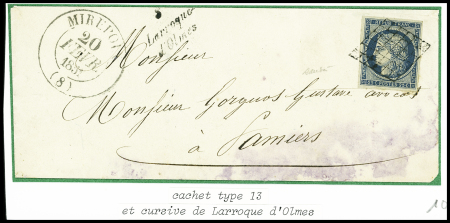 MIREPOIX
20
FEVR.
(8)
5
Larroque
d'Olmes
REPUB. FRANC.
Monsieur
Monsieur Gorguos Gustave avocat
à Pamiers
cachet type 13
et cursive de Larroque d'Olmes
10